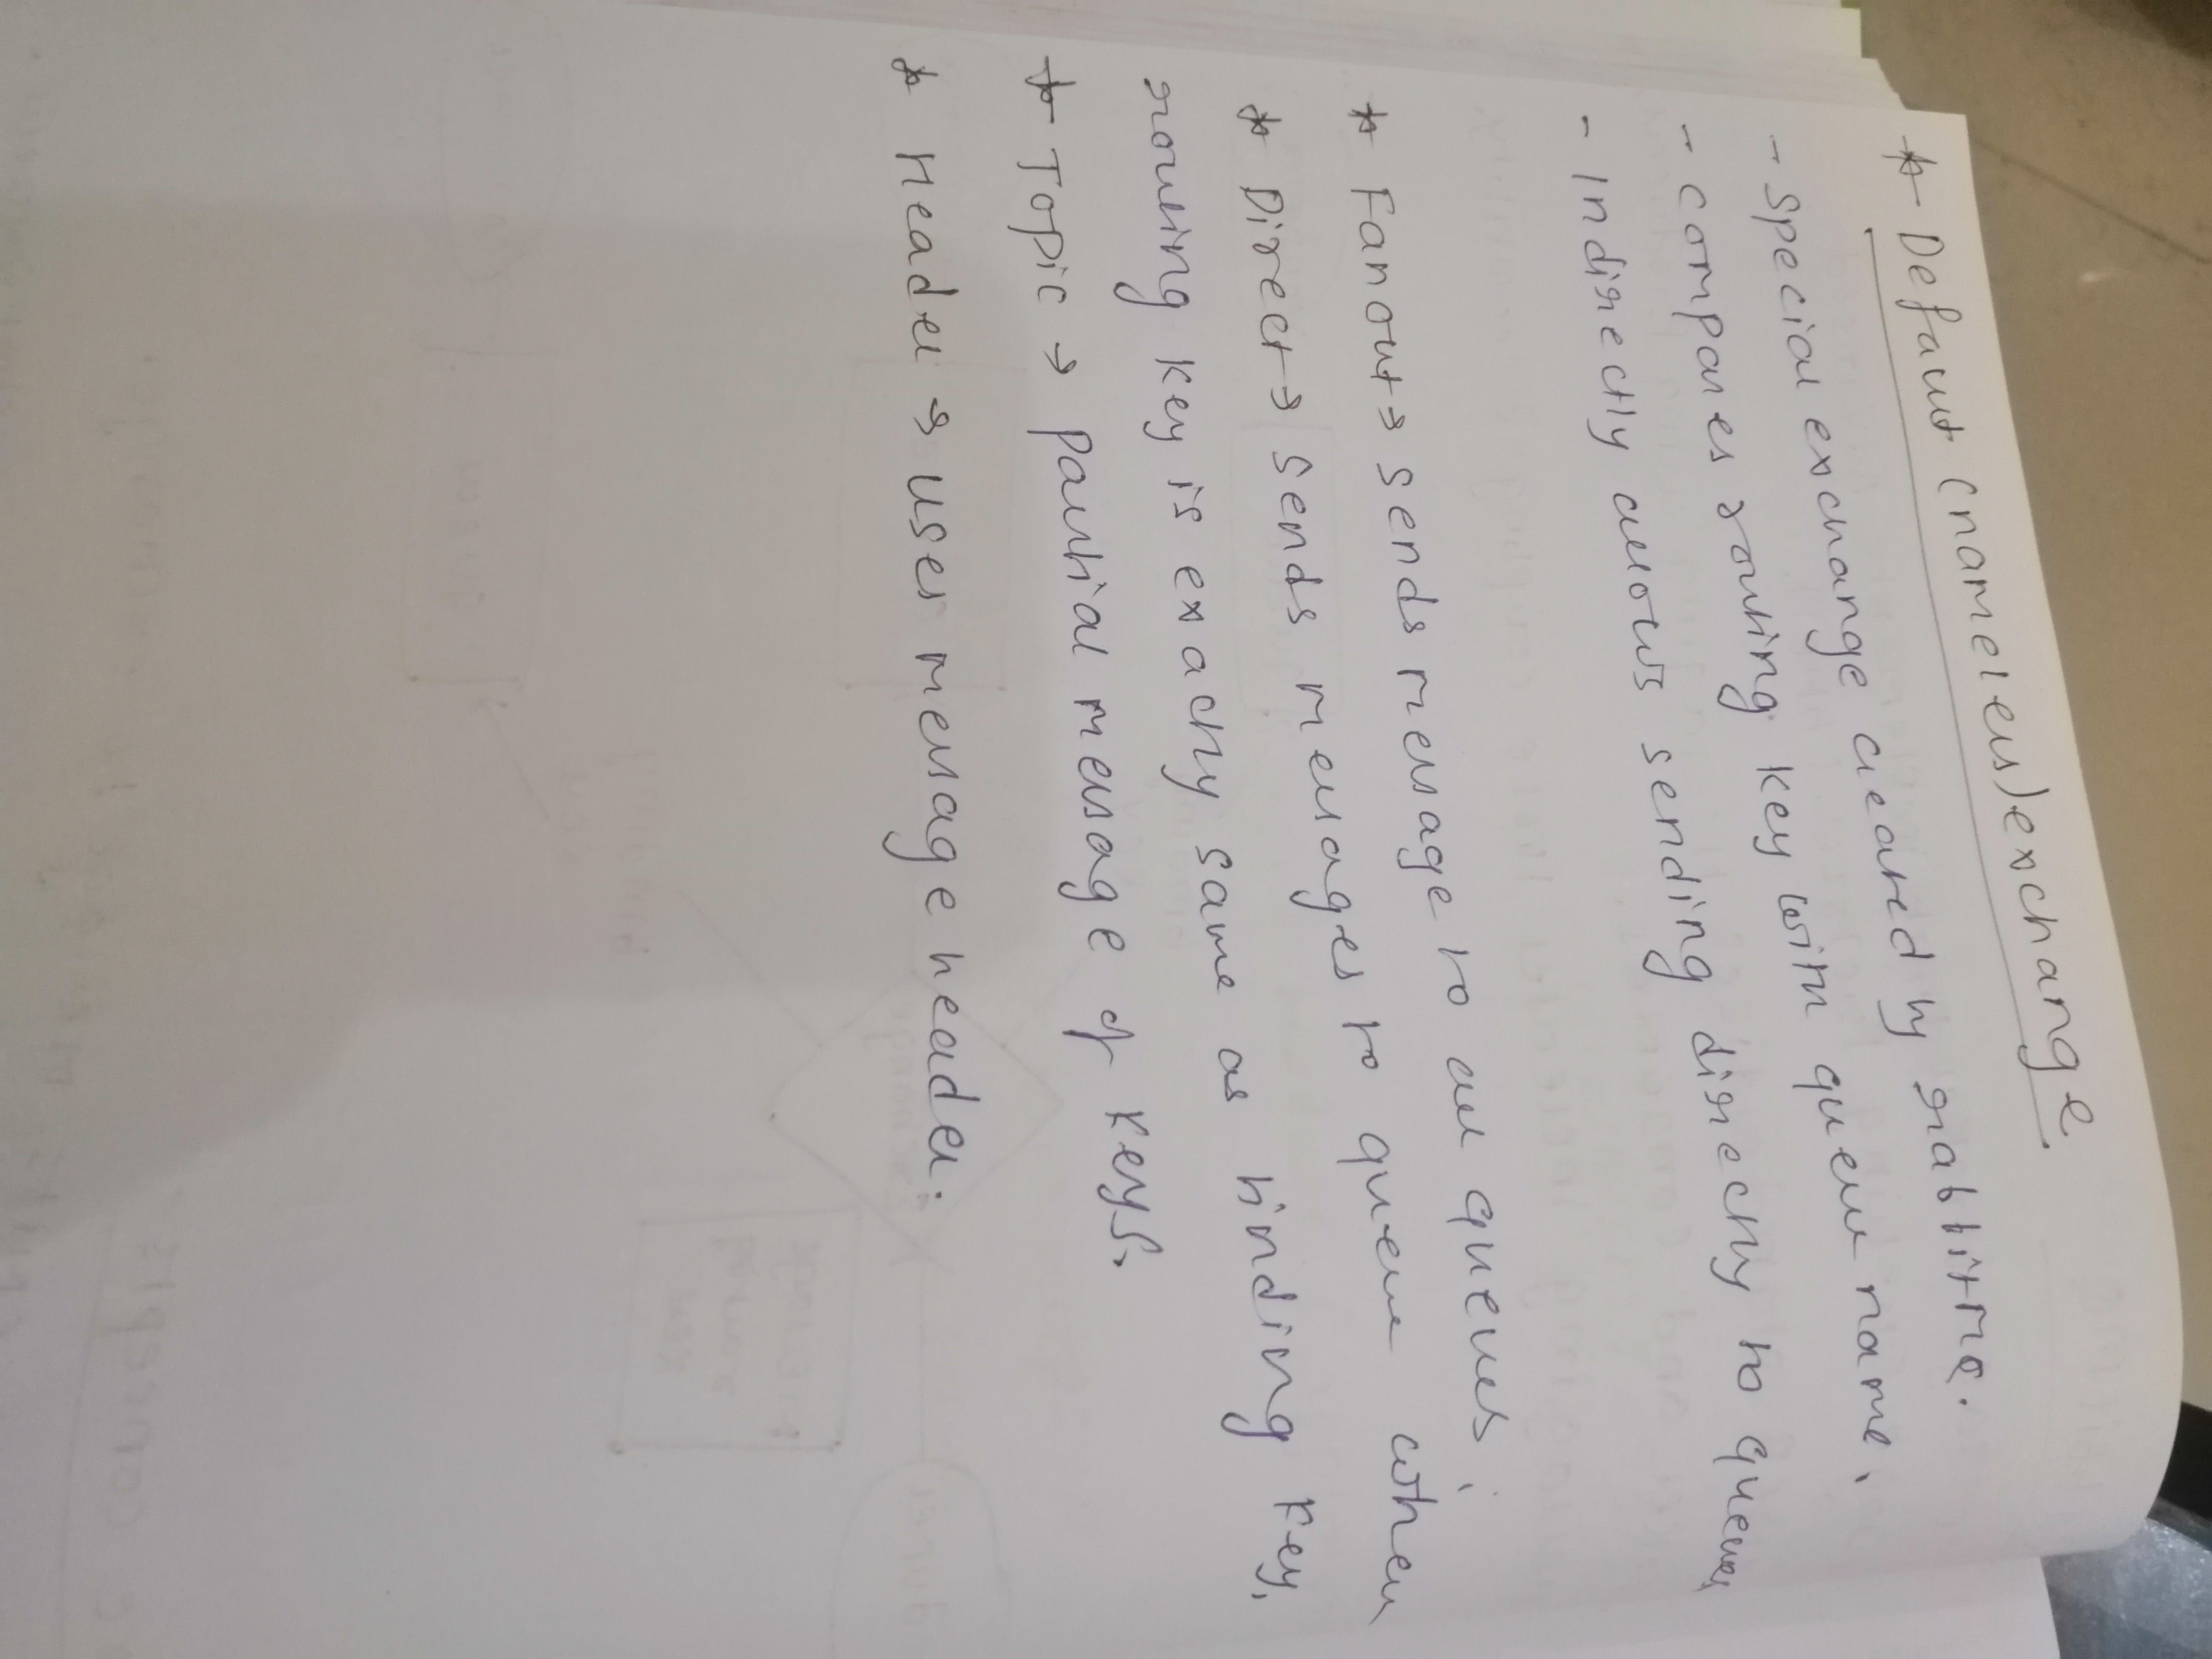 * Default (nameless) exchange.
- Special exchange created by rabbitmq.
- compares routing key with queue name.
- Indirectly allows sending directly to queues
* Fanout → sends message to all queues.
* Direct → sends messages to queue when
routing key is exactly same as binding key.
* Topic → partial message of keys.
* Header → uses message header.